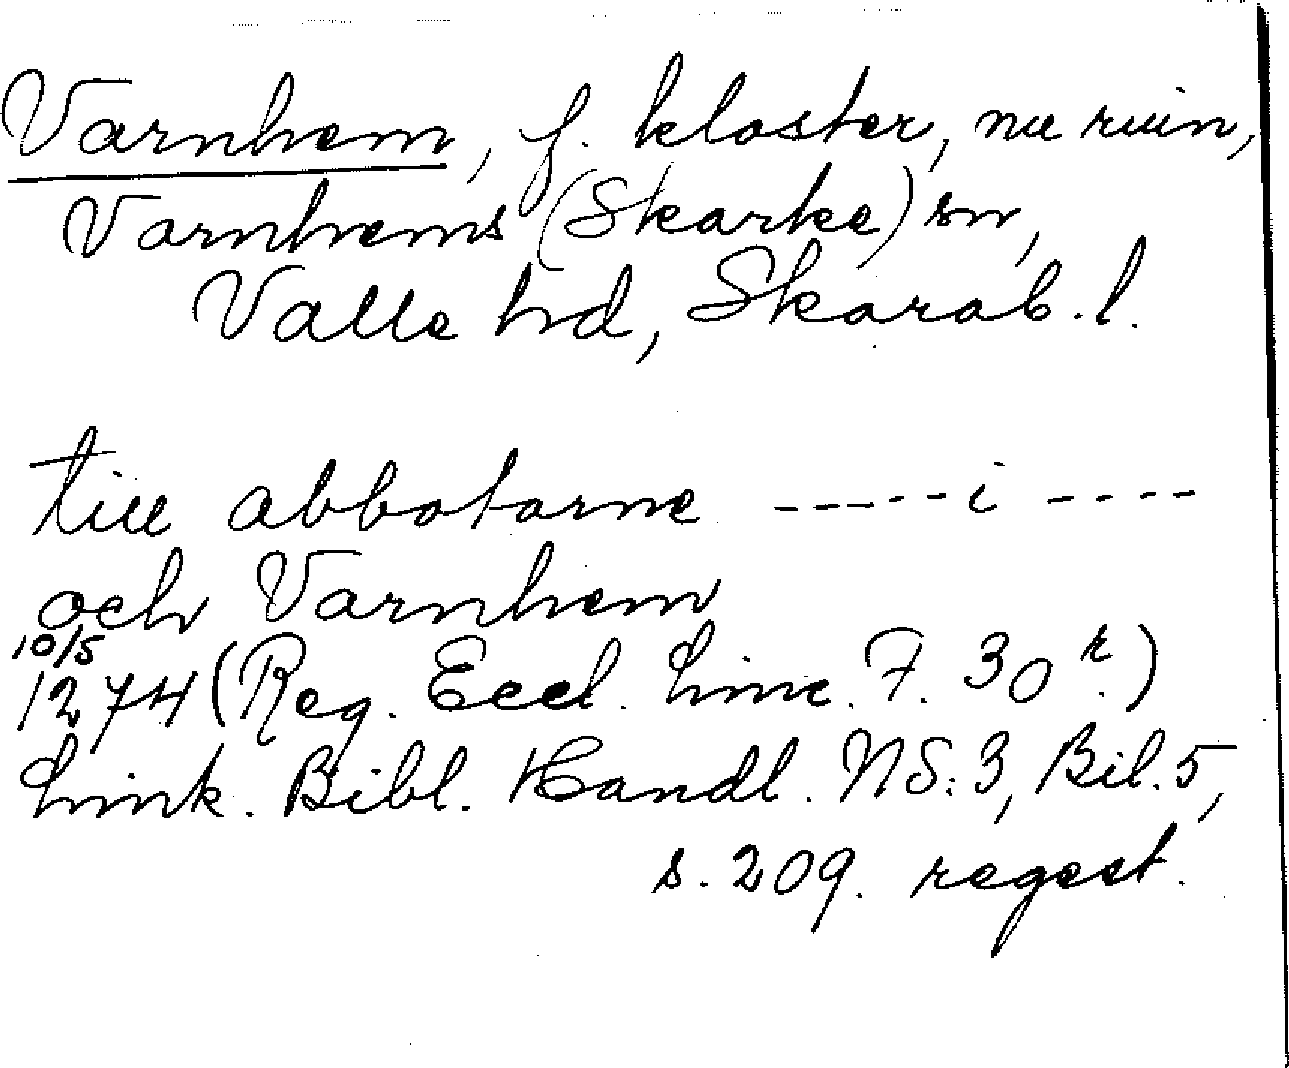 Varnhem, f. kloster, nu ruin,
Varnhems (Skarke) sn,
Valle hd, Skarab. l.
till abbotarne ----- -- i ----
och Varnhem
10/5
1274 (Reg. Eccl. Linc. F. 30 r.)
Link. Bibl. Handl. NS: 3, Bil. 5,
s. 209. regest.